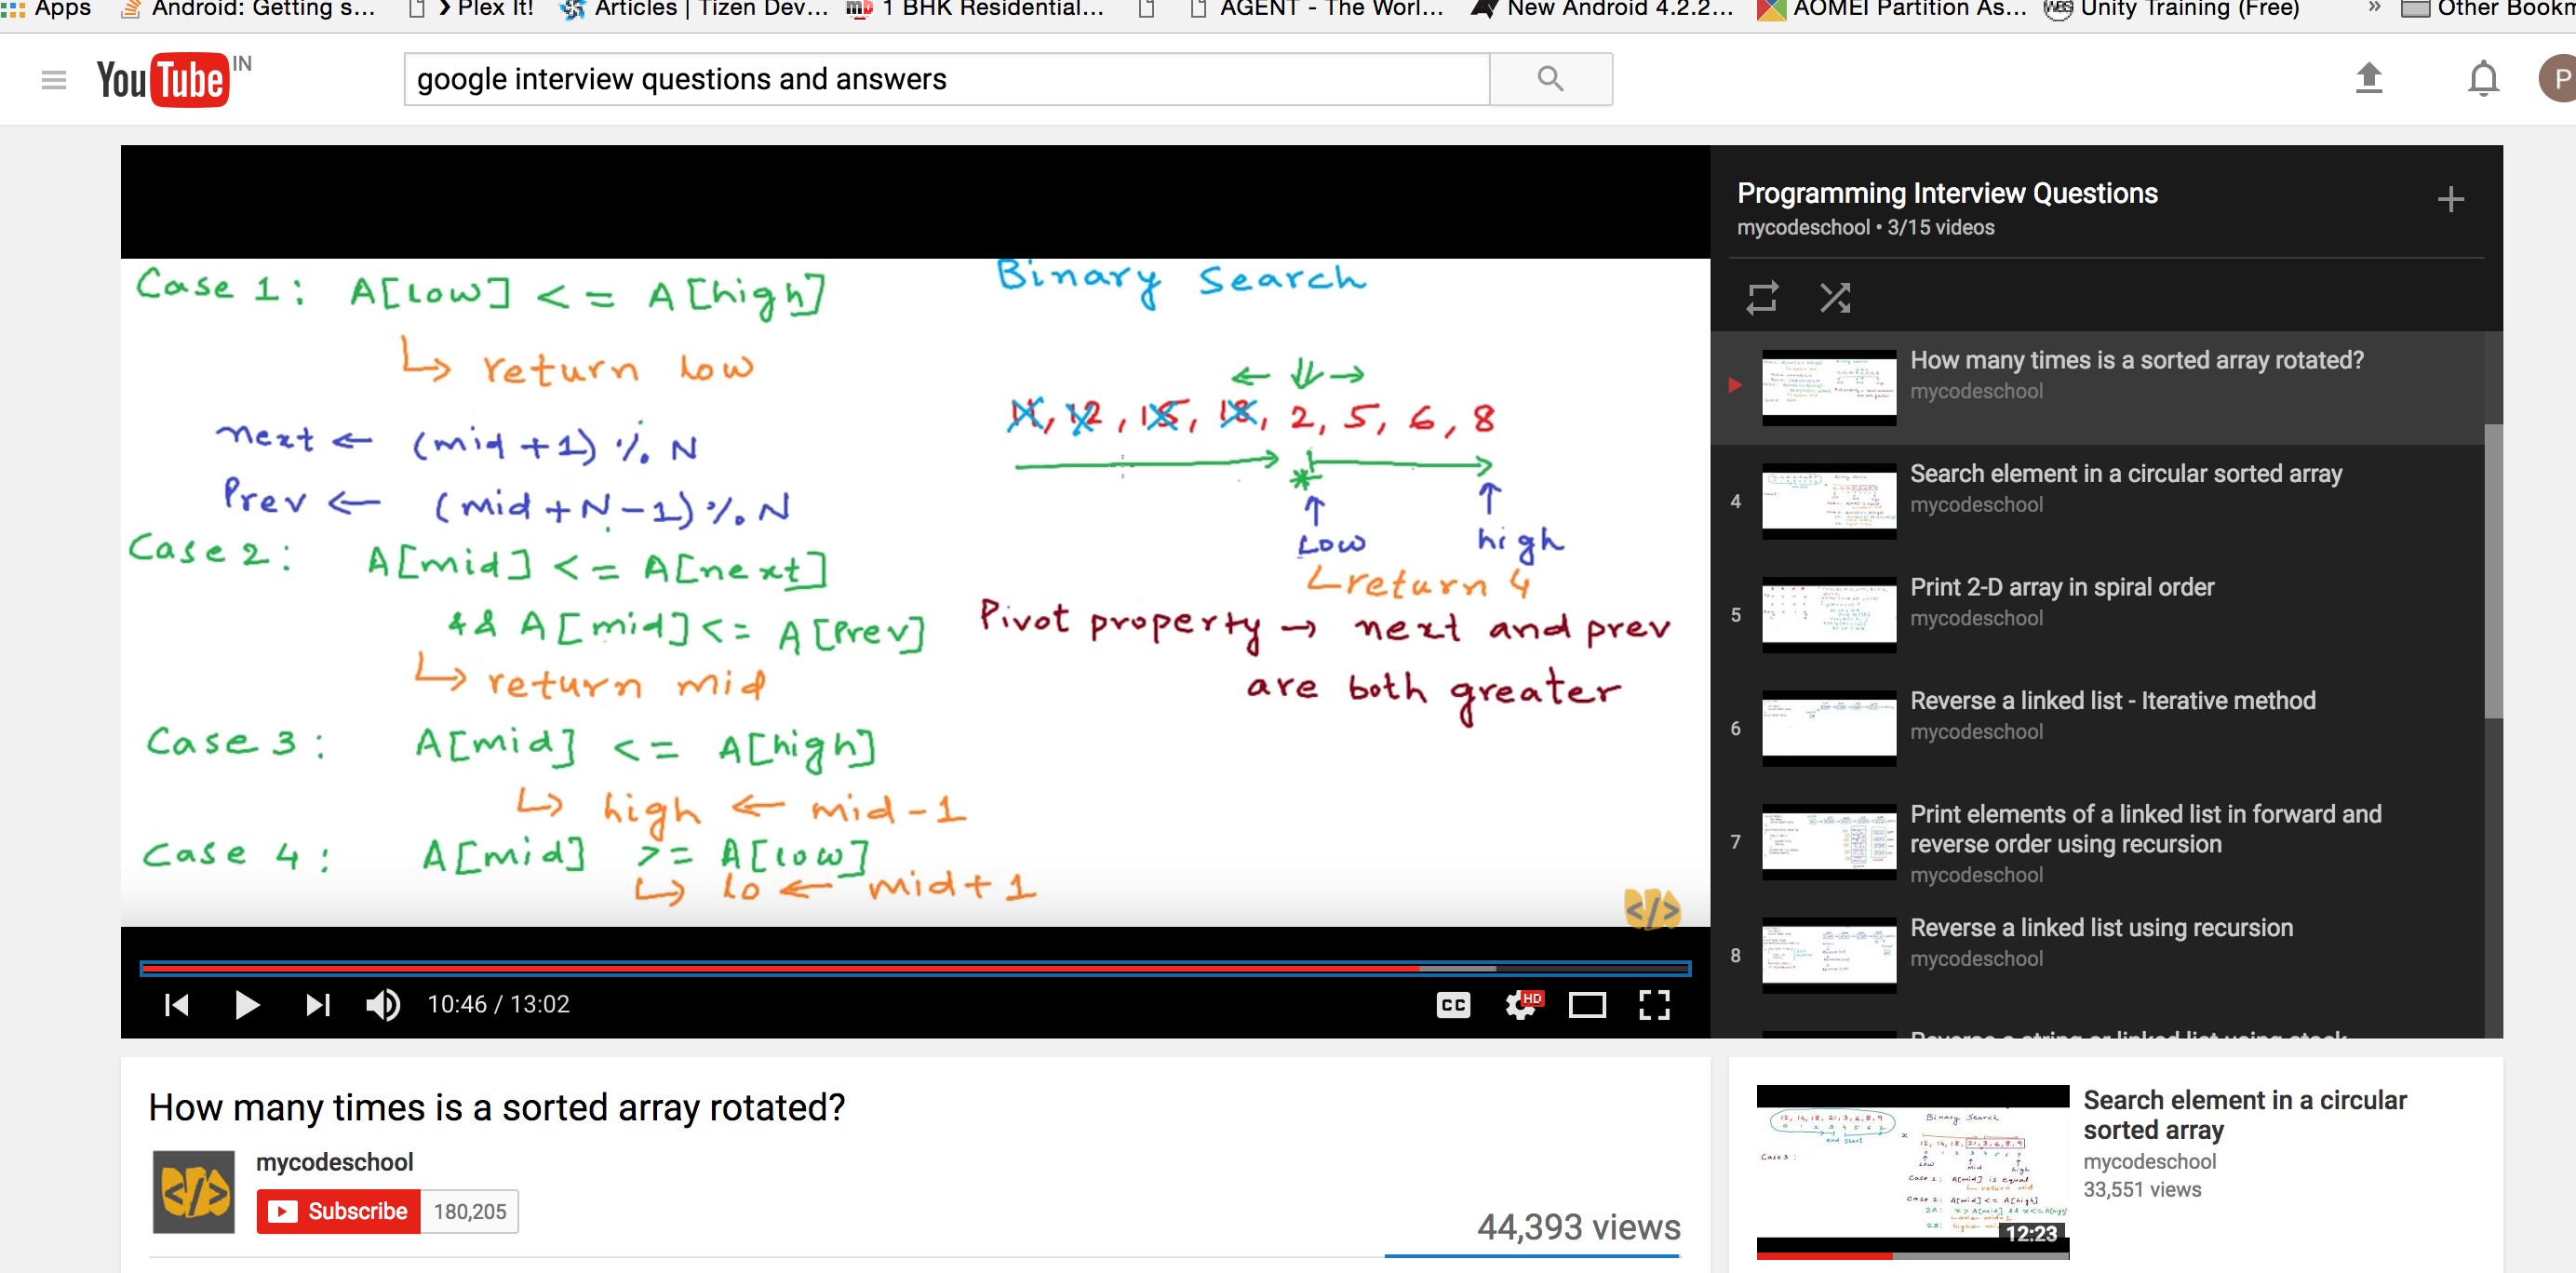 Apps
Android: Getting s...
Plex It!
Articles | Tizen Dev...
1 BHK Residential...
AGENT - The Worl...
New Android 4.2.2...
AOMEI Partition As...
Unity Training (Free)
»
Other Bookm
YouTube IN
google interview questions and answers
P
Case 1: A[low] <= A[high]
↳ return low
next ← (mid+1) % N
Prev ← (mid+N-1) % N
Case 2: A[mid] <= A[next]
&& A[mid] <= A[Prev]
↳ return mid
Case 3: A[mid] <= A[high]
↳ high ← mid-1
Case 4: A[mid] >= A[low]
↳ lo ← mid+1
Binary Search
11, 12, 15, 18, 2, 5, 6, 8
Low high
↳ return 4
Pivot property → next and prev
are both greater
</>
10:46 / 13:02
CC
HD
Programming Interview Questions
mycodeschool • 3/15 videos
How many times is a sorted array rotated?
mycodeschool
4
Search element in a circular sorted array
mycodeschool
5
Print 2-D array in spiral order
mycodeschool
6
Reverse a linked list - Iterative method
mycodeschool
7
Print elements of a linked list in forward and
reverse order using recursion
mycodeschool
8
Reverse a linked list using recursion
mycodeschool
Reverse a string or linked list using stack
How many times is a sorted array rotated?
</>
mycodeschool
Subscribe 180,205
44,393 views
Binary Search
12:23
Search element in a circular
sorted array
mycodeschool
33,551 views